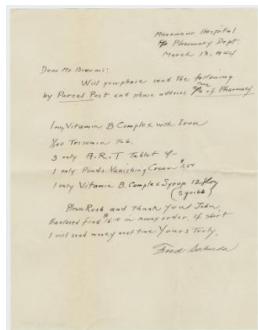 Manzanar Hospital
c/o Pharmacy Dept
March 13, 1944
Dear Mr
Will you please send the following
by Parcel Post and please address me c/o of Pharmacy
1 only Vitamin B Complex with Iron
Tab.
3 only A.R.T Tablet
1 only Ponds Vanishing Cream
1 only Vitamin B. Complex Syrup 12
Squibb
Please Rush and Thank You! John,
Enclosed find in money order, if short
I will send money next time Yours Truly,
Fred